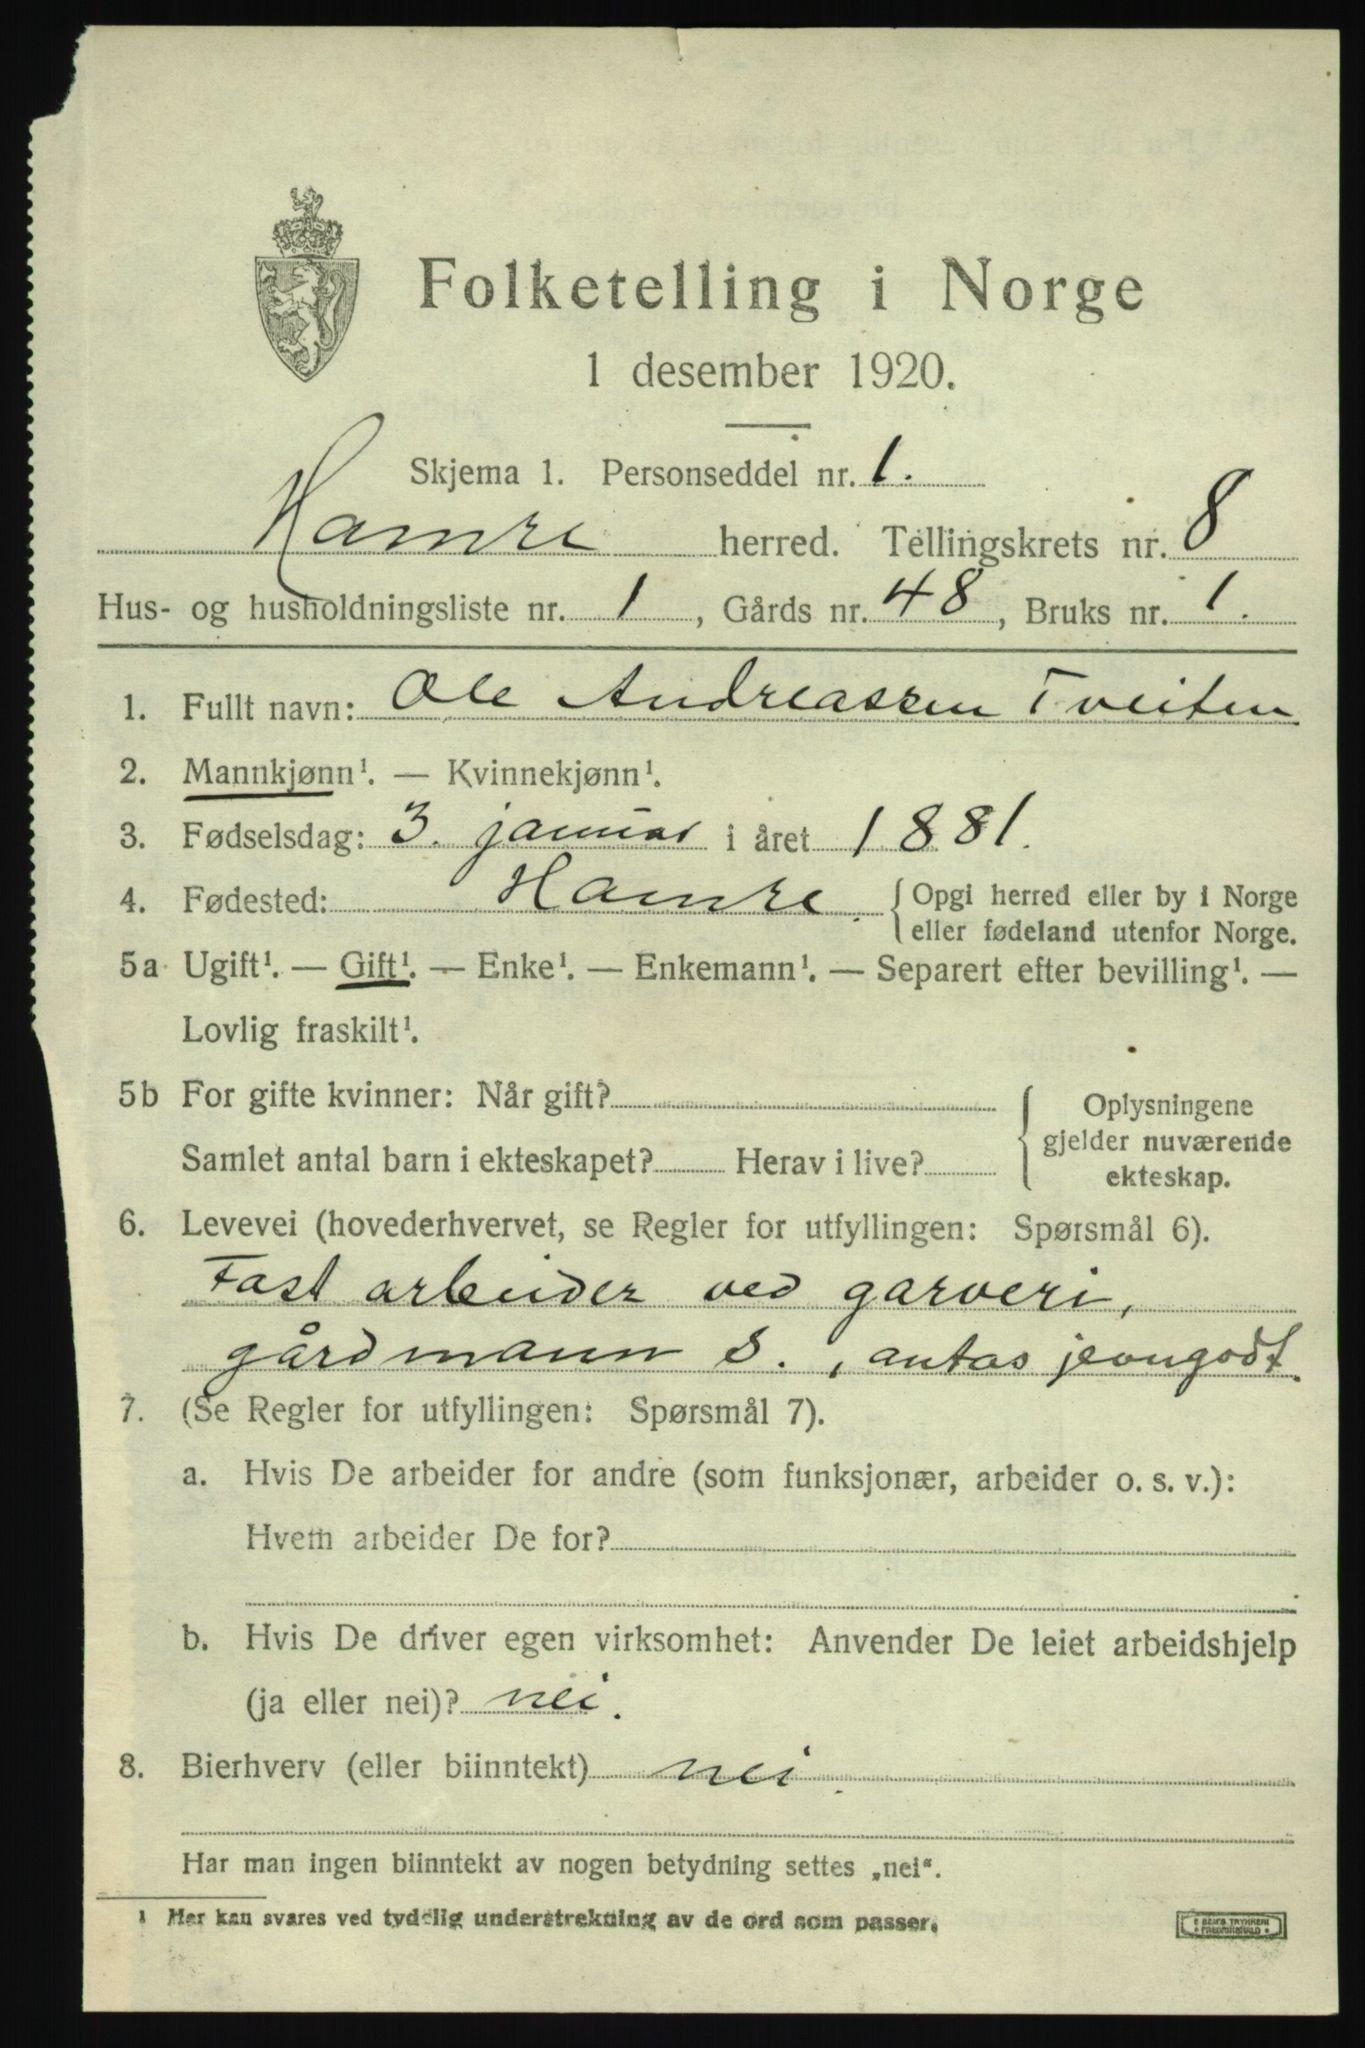 Folketelling i Norge
1 desember 1920.
Skjema 1. Personseddel nr. 1.
Hamre herred. Tellingskrets nr. 8
Hus- og husholdningsliste nr. 1, Gårds nr. 48, Bruks nr. 1.
1. Fullt navn: Ole Andreassen Tveiten
2. Mannkjønn¹. — Kvinnekjønn¹.
3. Fødselsdag: 3. januar i året 1881.
4. Fødested: Hamre. { Opgi herred eller by i Norge
eller fødeland utenfor Norge.
5a Ugift¹. — Gift¹. — Enke¹. — Enkemann¹. — Separert efter bevilling¹. —
Lovlig fraskilt¹.
5b For gifte kvinner: Når gift? { Oplysningene
gjelder nuværende
Samlet antal barn i ekteskapet? Herav i live?
ekteskap.
6. Levevei (hovederhvervet, se Regler for utfyllingen: Spørsmål 6).
Fast arbeider ved garveri,
gårdmann S., antas jevngodt.
7. (Se Regler for utfyllingen: Spørsmål 7).
a. Hvis De arbeider for andre (som funksjonær, arbeider o. s. v.):
Hvem arbeider De for?
b. Hvis De driver egen virksomhet: Anvender De leiet arbeidshjelp
(ja eller nei)? nei.
8. Bierhverv (eller biinntekt) nei.
Har man ingen biinntekt av nogen betydning settes „nei“.
¹ Her kan svares ved tydelig understrekning av de ord som passer.